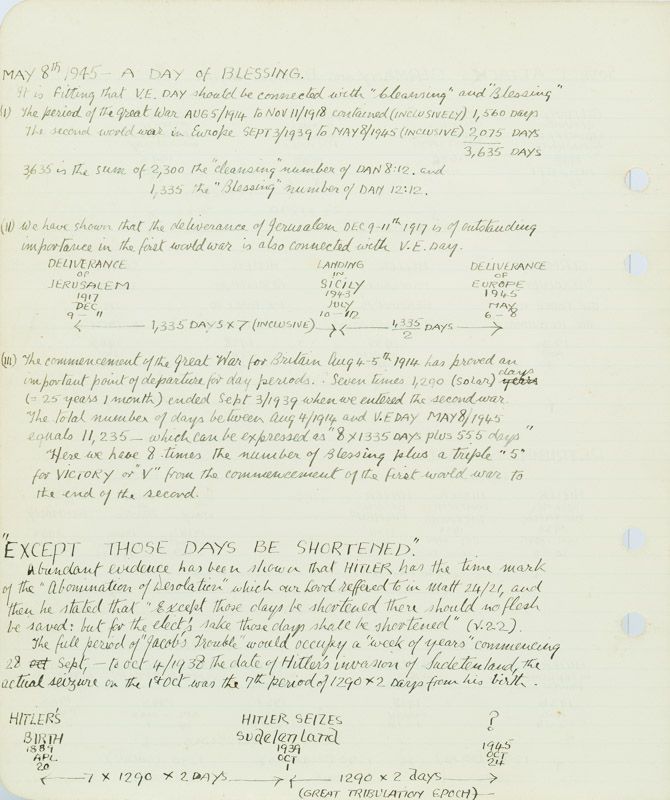 MAY 8th 1945 – A DAY of BLESSING.
It is fitting that V.E. DAY should be connected with "cleansing" and "Blessing"
(I) The period of the Great War AUG 5/1914 to NOV 11/1918 contained (INCLUSIVELY) 1,560 DAYS
The second world war in Europe SEPT 3/1939 to MAY 8/1945 (INCLUSIVE) 2,075 DAYS
3,635 DAYS
3,635 is the sum of 2,300 the "cleansing" number of DAN 8:12. and
1,335 the "Blessing" number of DAN 12:12.
(II) We have shown that the deliverance of Jerusalem DEC 9-11th 1917 is of outstanding
importance in the first world war is also connected with V.E. Day.
DELIVERANCE OF JERUSALEM 1917 DEC 9 - 11
LANDING IN SICILY 1943 JULY 10-12
DELIVERANCE OF EUROPE 1945 MAY 6-8
1,335 DAYS x 7 (INCLUSIVE)
1,335/2 DAYS
(III) The commencement of the Great War for Britain Aug 4-5th 1914 has proved an
important point of departure for day periods. Seven times 1,290 (solar) years days
(= 25 years 1 month) ended Sept 3/1939 when we entered the second war
The total number of days between Aug 4/1914 and V.E DAY MAY 8/1945
equals 11,235 – which can be expressed as "8 x 1335 DAYS plus 555 days"
Here we have 8 times the number of Blessing plus a triple "5"
for VICTORY or "V" from the commencement of the first world war to
the end of the second.
"EXCEPT THOSE DAYS BE SHORTENED."
Abundant evidence has been shown that HITLER has the time mark
of the "Abomination of Desolation" which our Lord reffered to in Matt 24/21, and
then he stated that "Except those days be shortened there should no flesh
be saved: but for the elect's sake those days shall be shortened" (V.22).
The full period of "Jacob's Trouble" would occupy a "week of years" commencing
28 oct Sept, – to oct 4/1938 the date of Hitler's invasion of Sudetenland, the
actual seizure on the 1st Oct was the 7th period of 1290 x 2 Days from his birth.
HITLER'S BIRTH 1889 APL 20
HITLER SEIZES Sudetenland 1938 OCT 1
? 1945 OCT 24
7 x 1290 x 2 DAYS
1290 x 2 days
(GREAT TRIBULATION EPOCH)